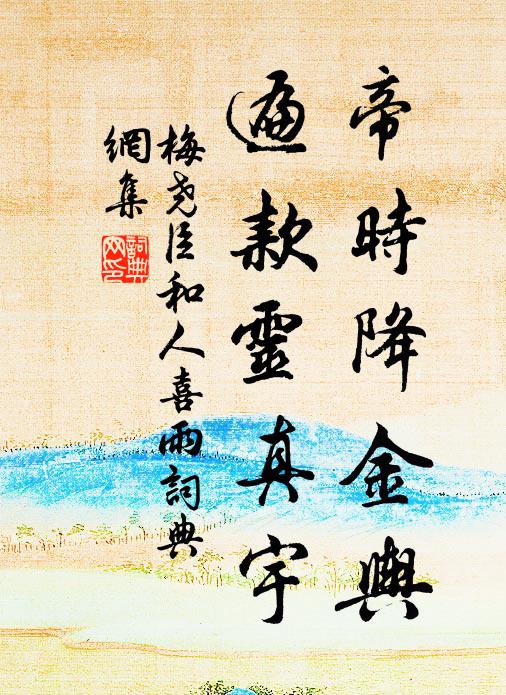 帝時降金輿
遍款靈真宇
梅堯臣和人喜雨詞典
網集
詞典
网印